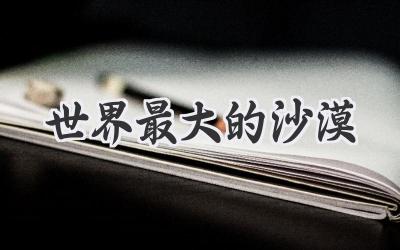 世界最大的沙漠